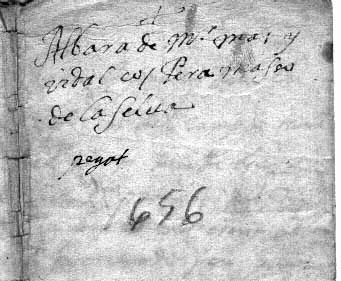 Albara de Mº mas y
vidal cos Pera maseo
de la selua
pegot
1656